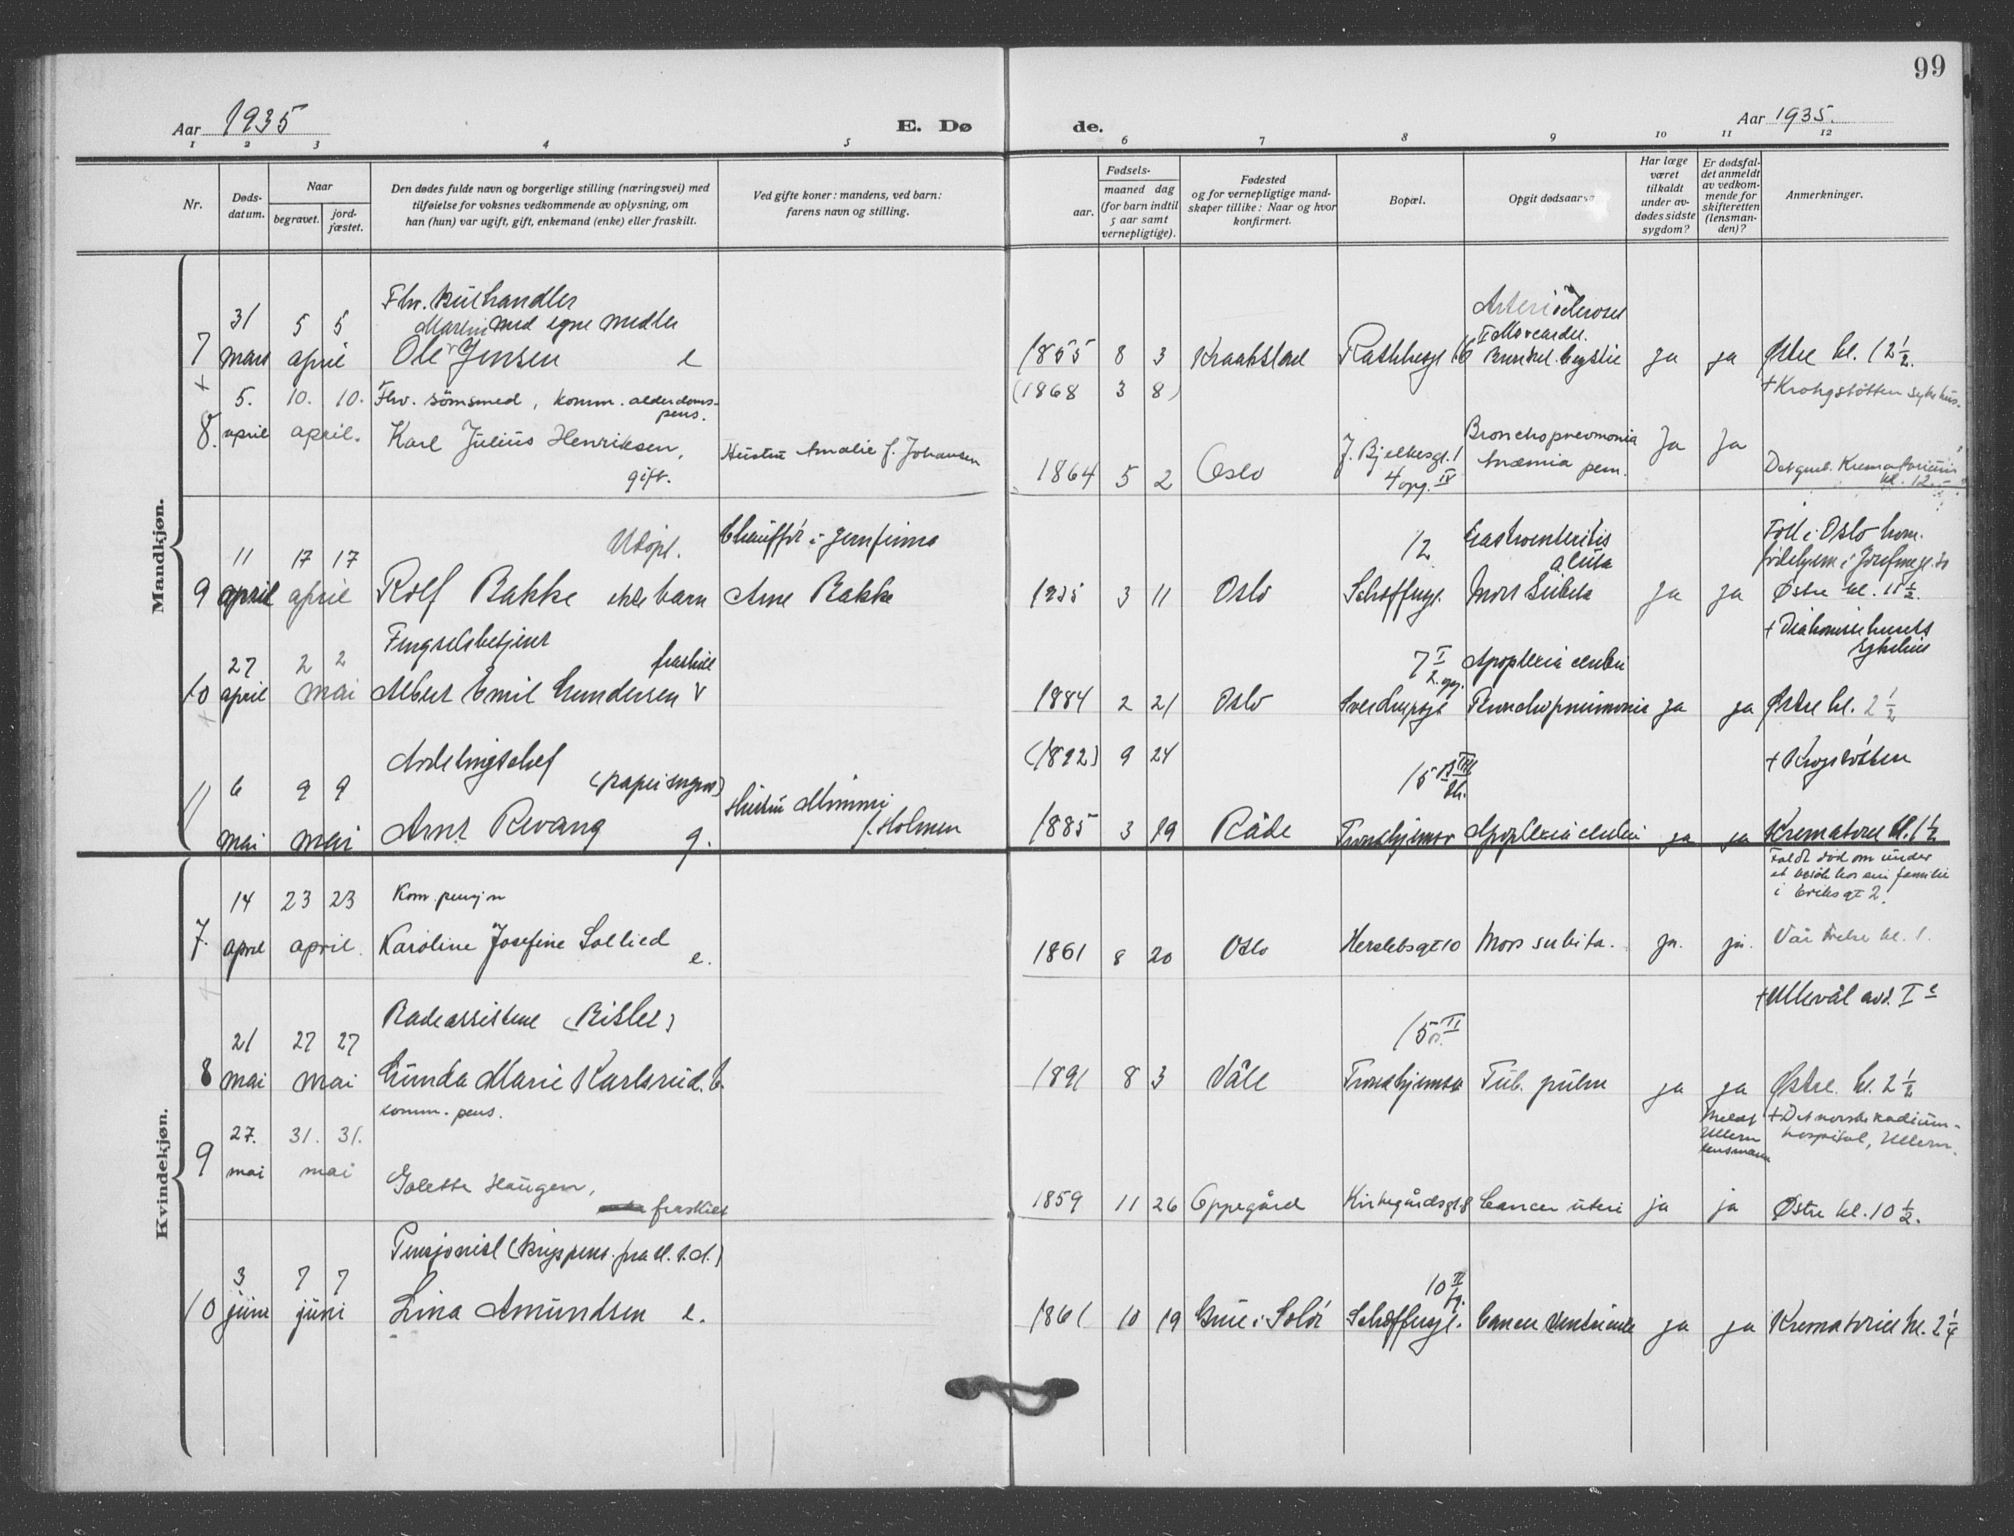 99
Aar 1935
E. Dø de.
Aar 1935.
1 2 3 4 5 6 7 8 9 10 11 12
Nr.
Døds-
datum.
Naar
begravet.
jord-
fæstet.
Den dødes fulde navn og borgerlige stilling (næringsvei) med
tilføielse for voksnes vedkommende av oplysning, om
han (hun) var ugift, gift, enkemand (enke) eller fraskilt.
Ved gifte koner: mandens, ved barn:
farens navn og stilling.
Fødsels-
aar.
maaned dag
(for barn indtil
5 aar samt
vernepligtige).
Fødested
og for vernepligtige mand-
skaper tillike: Naar og hvor
konfirmert.
Bopæl.
Opgit dødsaarsa
Har læge
været
tilkaldt
under av-
dødes sidste
sygdom?
Er dødsfal-
det anmeldt
av vedkom-
mende for
skifteretten
(lensman-
den)?
Anmerkninger.
Mandkjøn.
Fhv.
Martin med egne midler
31 5 5
7 mars april Ole Jensen e 1855 8 3 ja ja Østre kl. 12 1/2.
(1868 3 8)
+ Krohgstøtten sykehus.
5. 10. 10. Fhv. sømsmed, komm. alderdoms-
pens.
8. april april. Karl Julius Henriksen,
gift.
Hustru Amalie f. Johansen
1864 5 2 Oslo J. Bjelkesgt. 1
4 opg. IV
Bronchopneumonia
Anæmia pern.
Ja Ja
Det gml. Krematorium
kl. 12.
11 17 17
Chauffør i jernfirma
12 Gastroenteritis
acuta
9 april april Rolf Bakke ekte barn Arne Bakke 1935 3 11 Oslo Schøffergt. Mors Subita ja ja Østre kl. 11 1/2.
+ Diakonissehusets
sykehus
Fengselsbetjent
fraskilt
27 2 2
7 I
2. opg.
Apoplexia cerebri
10 april mai Albert Emil Gundersen 1884 2 21 Oslo Sverdrupsgt Bronchopneumonie ja ja Østre kl. 2 1/2
Avdelingschef
(papirengros)
(1892) 9 24
+ Krogstøtten
6 9 9
Hustru Mimmi
f. Holmen
15
11 mai mai Arne Revang g. 1885 3 19 Råde Trondhjemsv Apoplexia cerebri ja ja Krematoriet kl. 1 1/2
Kvindekjøn.
Faldt død om under
et besøk hos en familie
i Eriksgt 2.
14 23 23 Kom. pensjon
7. april april. Karoline Josefine Sollied e. 1861 8 20 Oslo Herslebsgt 10 Mors subita. ja. ja. Vår Frelser kl. 1.
+ Ullevål avd. I
Badeassistent (Bislet)
21 27 27
15 II
8 mai mai Gunda Marie Karlsrud. 1891 8 3 Våle Trondhjemsv Tub. pulm ja ja Østre kl. 2 1/2
komm. pens.
Meldt
Ullern
lensmann
+ Det norske radium-
hospital, Ullern.
27. 31. 31.
9 mai mai Golette Haugen,
fraskilt
1859 11 26 Oppegård Kirkegårdsgt. 8 Cancer uteri ja ja Østre kl. 10 1/2.
3 7 7
10 II
10 juni juni Lina Amundsen e. 1861 10 19 Grue i Solør Schøffergt. Cancer ventriculi ja ja Krematoriet kl. 2 1/4